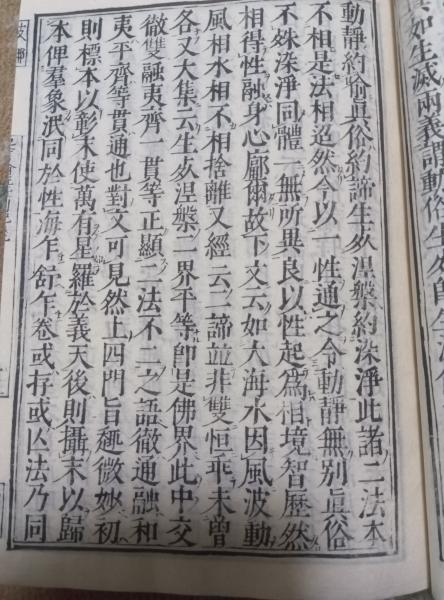 動靜約喻眞俗約諦生死涅槃約染淨此諸二法本
不相是法相逈然今以一性通之令動靜無別眞俗
不殊染淨同體一無所異良以性起爲相境智歷然
相得性融身心廓爾故下文云如大海水因風波動
風相水相不相捨離又經云二諦並非雙恒乖未曾
各又大集云生死涅槃二界平等卽是佛界此中交
徹雙融夷齊一貫等正顯二法不二之語徹通融和
夷平齊等貫通也對文可見然上四門旨極微妙初
則標本以彰末使萬有星羅於義天後則攝末以歸
本俾羣象泯同於性海乍舒乍卷或存或亾法乃同